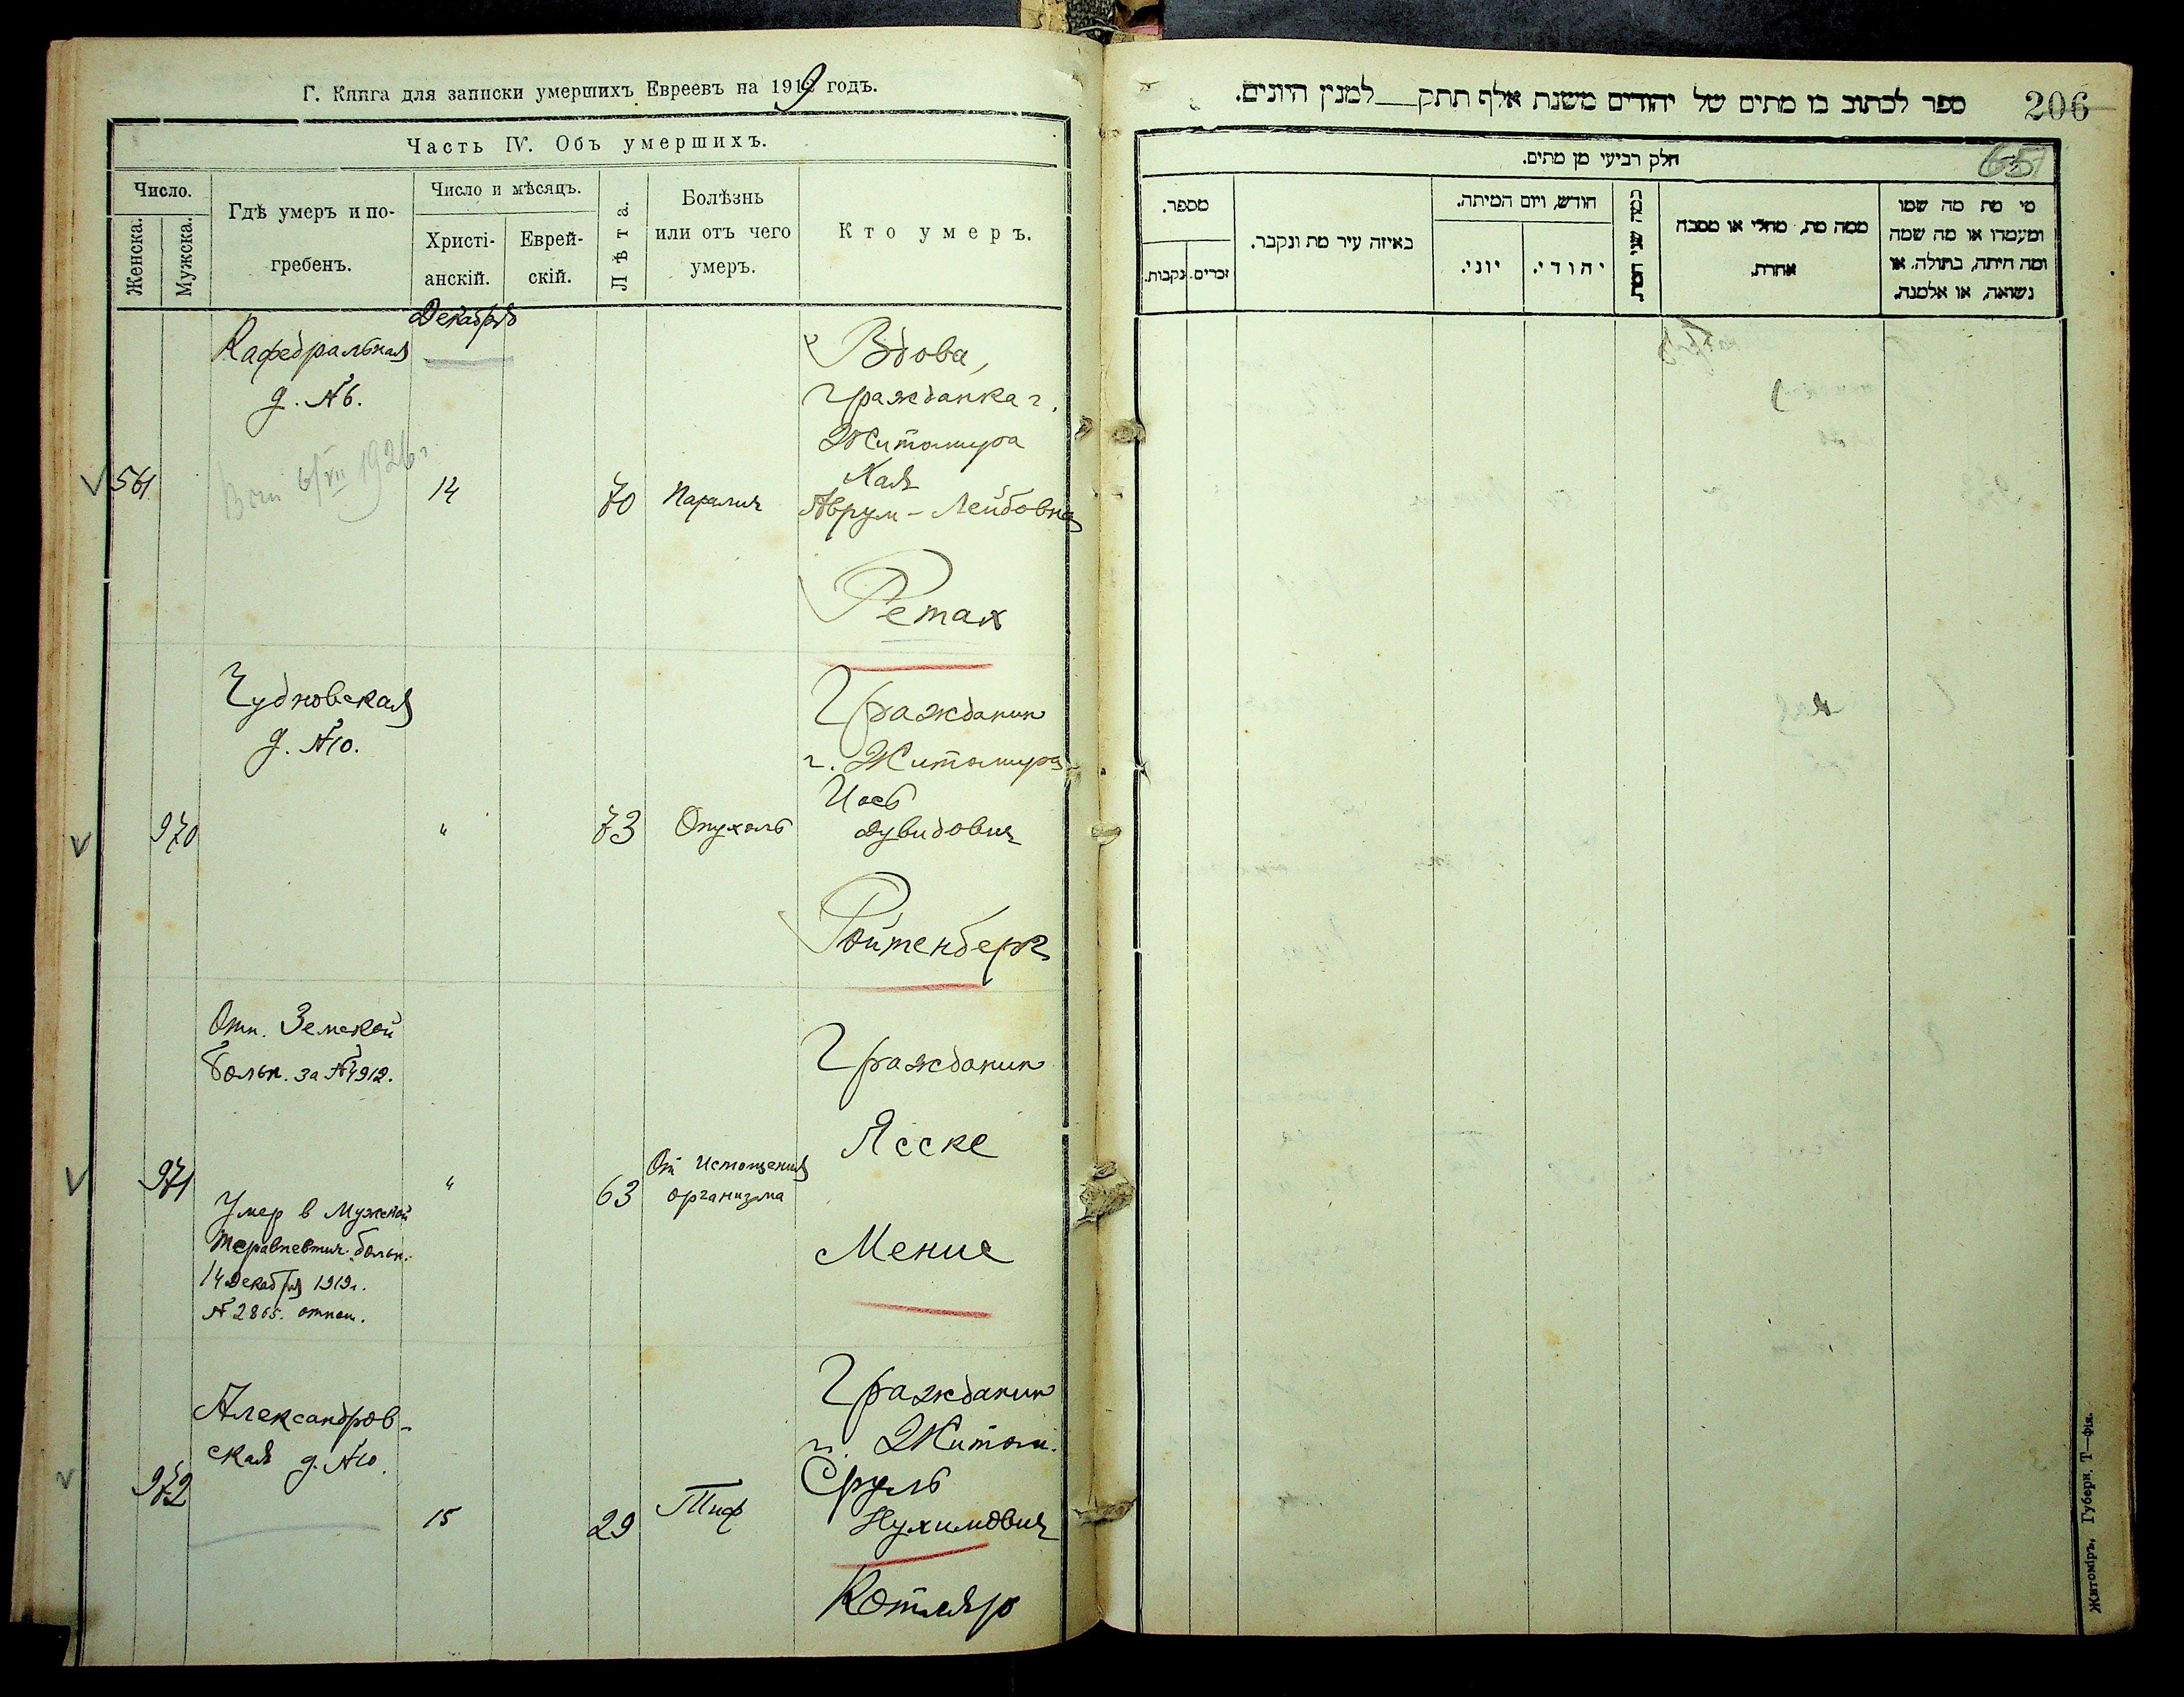 Г. Книга для записки умершихъ Евреевъ на 1919 годъ.
Часть IV. Объ умершихъ.
Число.
Женска.
Мужска.
Гдѣ умеръ и по-
гребенъ.
Число и мѣсяцъ.
Христі-
анскій.
Еврей-
скій.
Лѣта.
Болѣзнь
или отъ чего
умеръ.
Кто умеръ.
Декабрь
Кафедральная
д. №6.
6/VII 1926 г.
561
14
70
Паралич
Вдова,
Гражданка г.
Житомира
Хая
Аврум-Лейбовна
Ретах
Чудновская
д. №10.
970
"
73
Опухоль
Гражданин
г. Житомира
Иось
Дувидович
Ройтенберг
Отн. Земской
больн. за №4912.
Умер в Мужской
терапевтич. больн.
14 Декабря 1919 г.
№ 2865. отнош.
971
"
63
От истощения
организма
Гражданин
Ясске
Мение
Александров-
ская д. №10.
972
15
29
Тиф
Гражданин
г. Житом.
Сруль
Нухимович
Котляр
206
ספר לכתוב בו מתים של יהודים משנת אלף תתק__ למנין היונים.
65
חלק רביעי מן מתים.
מי מת מה שמו
ומעמדו או מה שמה
ומה היתה, בתולה, או
נשואה, או אלמנה.
ממה מת, מחלי או מסבה
אחרת.
כמה שני המת.
חודש, ויום המיתה.
יהודי.
יוני.
באיזה עיר מת ונקבר.
מספר.
זכרים.
נקבות.
Житоміръ, Губерн. Т—фія.